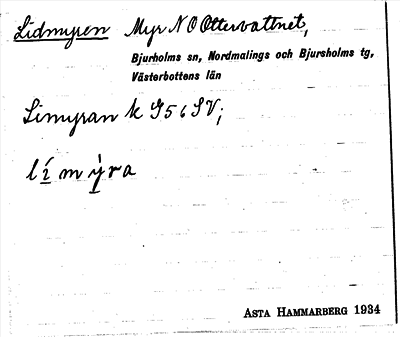 Lidmyren Myr N O Ottervattnet,
Bjurholms sn, Nordmalings och Bjursholms tg,
Västerbottens län
Limyran k G56 SV;
lí̱mỳ̱ra
ASTA HAMMARBERG 1934